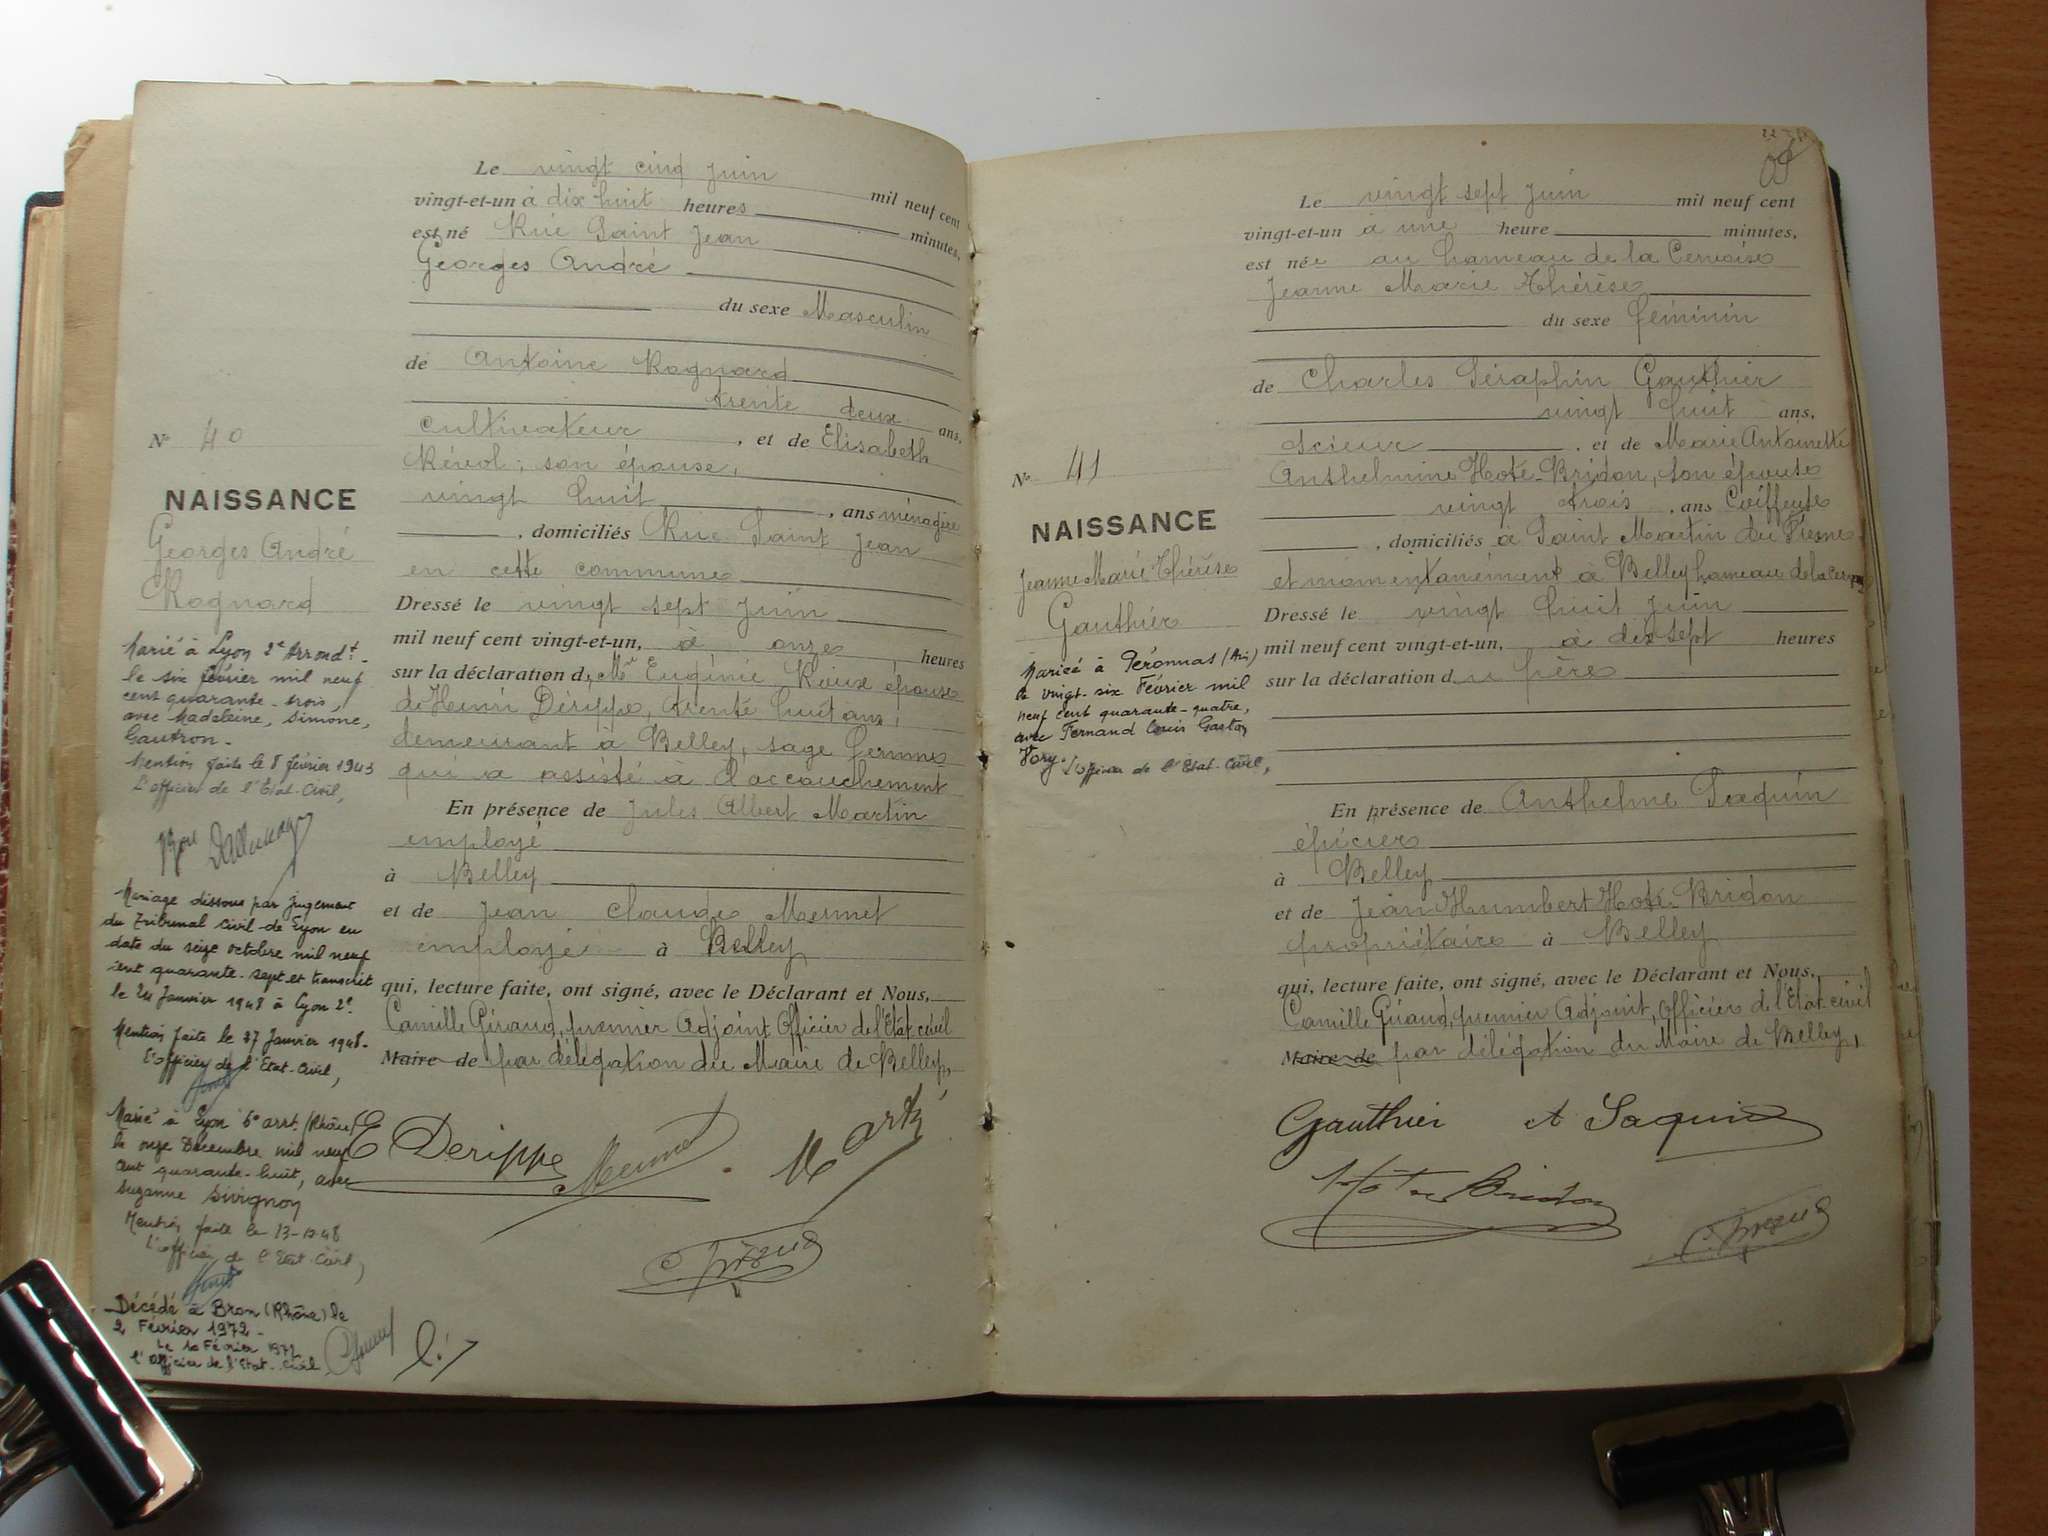 Le vingt cinq juin mil neuf cent
vingt-et-un à dix huit heures minutes,
est né Rue Saint Jean
Georges André
du sexe Masculin
de Antoine Rognard
trente deux ans,
cultivateur, et de Elisabeth
Révol, son épouse,
vingt huit, ans ménagère
, domiciliés Rue Saint Jean
en cette commune
Dressé le vingt sept juin
mil neuf cent vingt-et-un, à onze heures
sur la déclaration de Me Eugénie Rioux épouse
de Henri Dérippe, trente huit ans,
demeurant à Belley, sage femme
qui a assisté à l'accouchement
En présence de Jules Albert Martin
employé
à Belley
et de Jean Claude Mermet
employé à Belley
qui, lecture faite, ont signé, avec le Déclarant et Nous,
Camille Giraud, premier Adjoint, Officier de l'Etat civil
Maire de par délégation du Maire de Belley,
E Derippe Mermet Martin
N° 40
NAISSANCE
Georges André
Rognard
Marié à Lyon 2e Arrondt.
le six février mil neuf
cent quarante-trois,
avec Madeleine, Simone,
Gautron.
Mention faite le 8 février 1943
L'officier de l'Etat-Civil,
Mariage dissous par jugement
du Tribunal Civil de Lyon en
date du seize octobre mil neuf
cent quarante-sept et transcrit
le 24 Janvier 1948 à Lyon 2e.
Mention faite le 27 Janvier 1948-
L'officier de l'Etat-Civil,
Marié à Lyon 6e arrt. (Rhône)
le onze Décembre mil neuf
cent quarante-huit, avec
Suzanne Sivignon
Mention faite le 13-12-48
L'officier de l'Etat-Civil,
Décédé à Bron (Rhône) le
2 Février 1972-
Le 10 Février 1972
l'officier de l'Etat-Civil
Le vingt sept juin mil neuf cent
vingt-et-un à une heure minutes,
est née au hameau de la Cervoise
Jeanne Marie Thérèse
du sexe féminin
de Charles Séraphin Gauthier
vingt huit ans,
scieur, et de Marie Antoinette
Anthelmine Hote-Bridon, son épouse
vingt trois, ans Coiffeuse
, domiciliés à Saint Martin du Fresne
et momentanément à Belley hameau de la
Dressé le vingt huit juin
mil neuf cent vingt-et-un, à dix sept heures
sur la déclaration du père
En présence de Anthelme Saquin
épicier
à Belley
et de Jean Humbert Hote-Bridon
propriétaire à Belley
qui, lecture faite, ont signé, avec le Déclarant et Nous,
Camille Giraud, premier Adjoint, Officier de l'Etat civil
Maire de par délégation du Maire de Belley,
Gauthier A Saquin
Hote Bridon
N° 41
NAISSANCE
Jeanne Marie Thérèse
Gauthier
Mariée à Péronnas (Ain)
le vingt-six Février mil
neuf cent quarante-quatre,
avec Fernand Louis Gaston
Vory. L'officier de l'Etat-Civil,